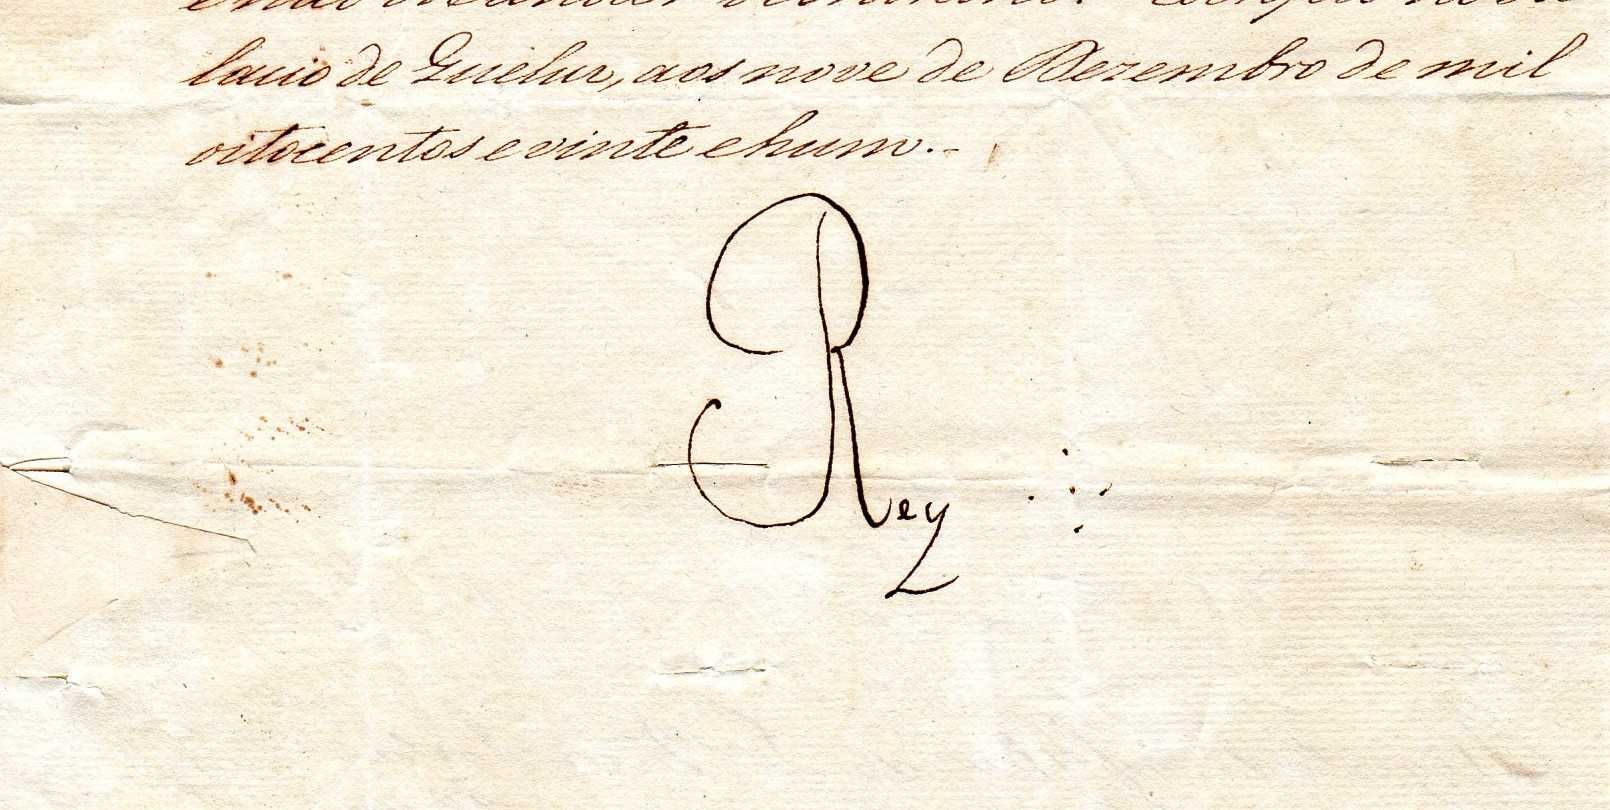 lacio de Quelus, aos nove de Dezembro de mil
oitocentos e vinte e hum.
Rey